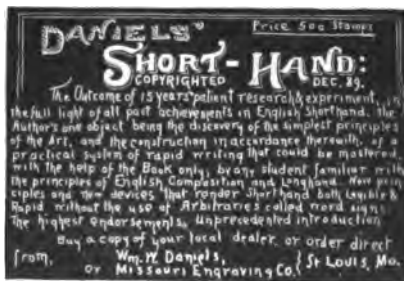 DANIELS'
Price 50c Stamps
SHORT-HAND:
COPYRIGHTED DEC. 89.
The Outcome of 15 years' patient research & experiment, in
the full light of all past achievements in English Shorthand. The
Author's one object being the discovery of the simplest principles
of the Art, and the construction in accordance therewith, of a
practical system of rapid writing that could be mastered
with the help of the Book only, by any student familiar with
the principles of English Composition and Longhand. New prin
ciples and new devices that render Shorthand both Legible &
Rapid without the use of Arbitraries called word signs.
The highest endorsements. Unprecedented introduction
Buy a copy of your local dealer or order direct
from, Wm. W. Daniels,
or Missouri Engraving Co. } St Louis, Mo.